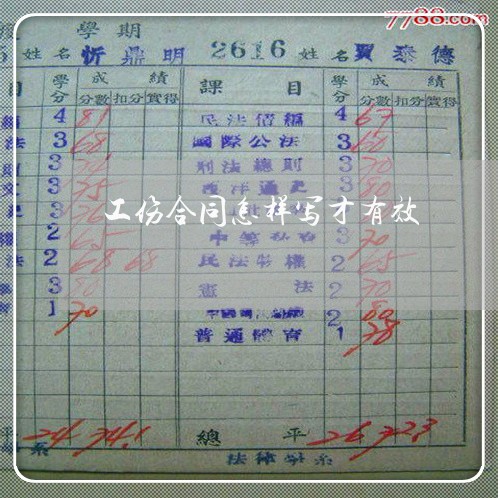 7788.com
學期
姓名 忻鼎明 2616 姓名 賈泰德
目 學分 成績 課目 學分 成績
分數 扣分 實得 分數 扣分 實得
4 81 民法債編 4 67
法 3 68 國際公法 3 60
3 刑法總則 3 70
3 75 西洋通史 3 80
3 76 3
工伤合同怎样写才有效
2 65 3 70
法 2 68 68 民法物權 2 65
3 80 憲法 2 70
1 70 2 80
普通體育 1 78
平 24 74.1 總平 26 72.3
系 法律學系